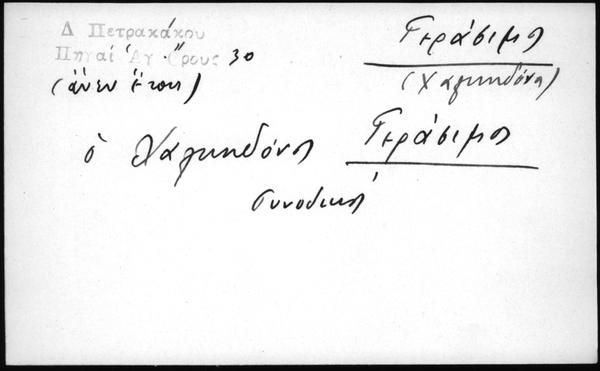 Δ Πετρακάκου
Πηγαί Ἁγ. Ὄρους 30
(ἄνευ ἔτους)
Γεράσιμος
(Χαλκηδόνος)
ὁ Χαλκηδόνος Γεράσιμος
Συνοδικός